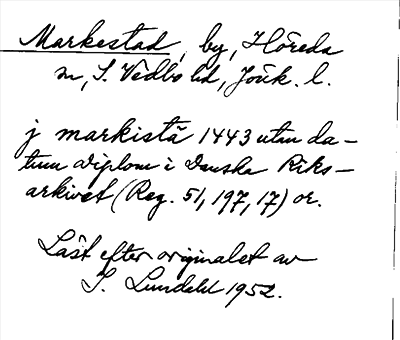 Markestad, by, Höreda
sn, S. Vedbo hd, Jönk. l.
j markistā 1443 utan da-
tum diplom i Danska Riks-
arkivet (Reg. 51, 197, 17) or.
Läst efter originalet av
S. Lundahl 1952.